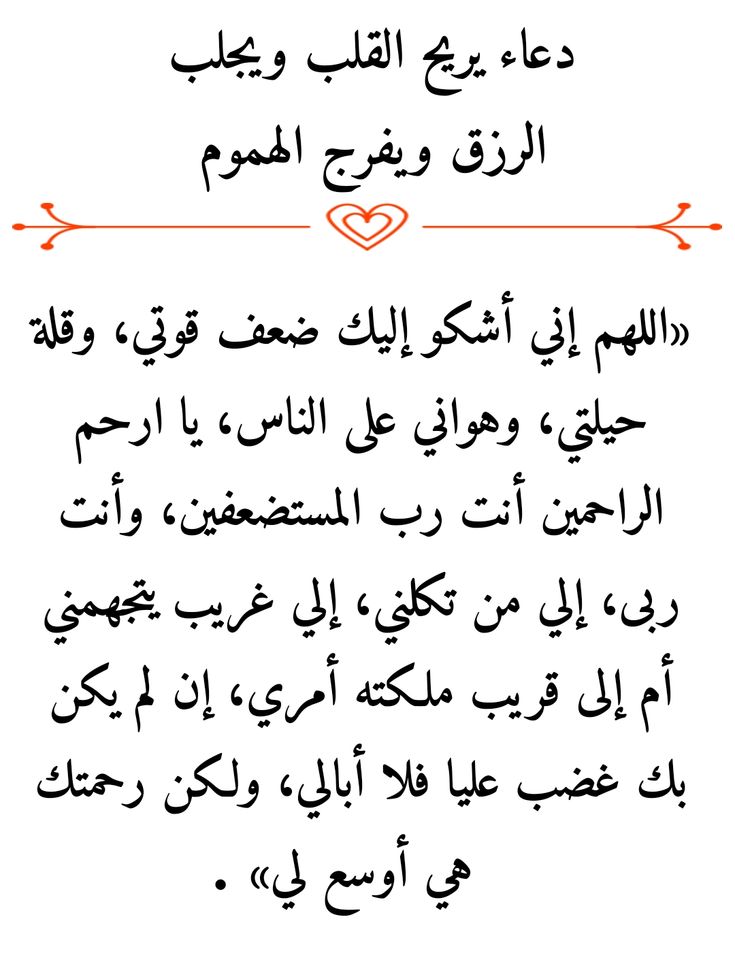 دعاء يريح القلب ويجلب
الرزق ويفرج الهموم
«اللهم إني أشكو إليك ضعف قوتي، وقلة
حيلتي، وهواني على الناس، يا ارحم
الراحمين أنت رب المستضعفين، وأنت
ربى، إلي من تكلني، إلي غريب يتجهمني
أم إلى قريب ملكته أمري، إن لم يكن
بك غضب عليا فلا أبالي، ولكن رحمتك
هي أوسع لي» .